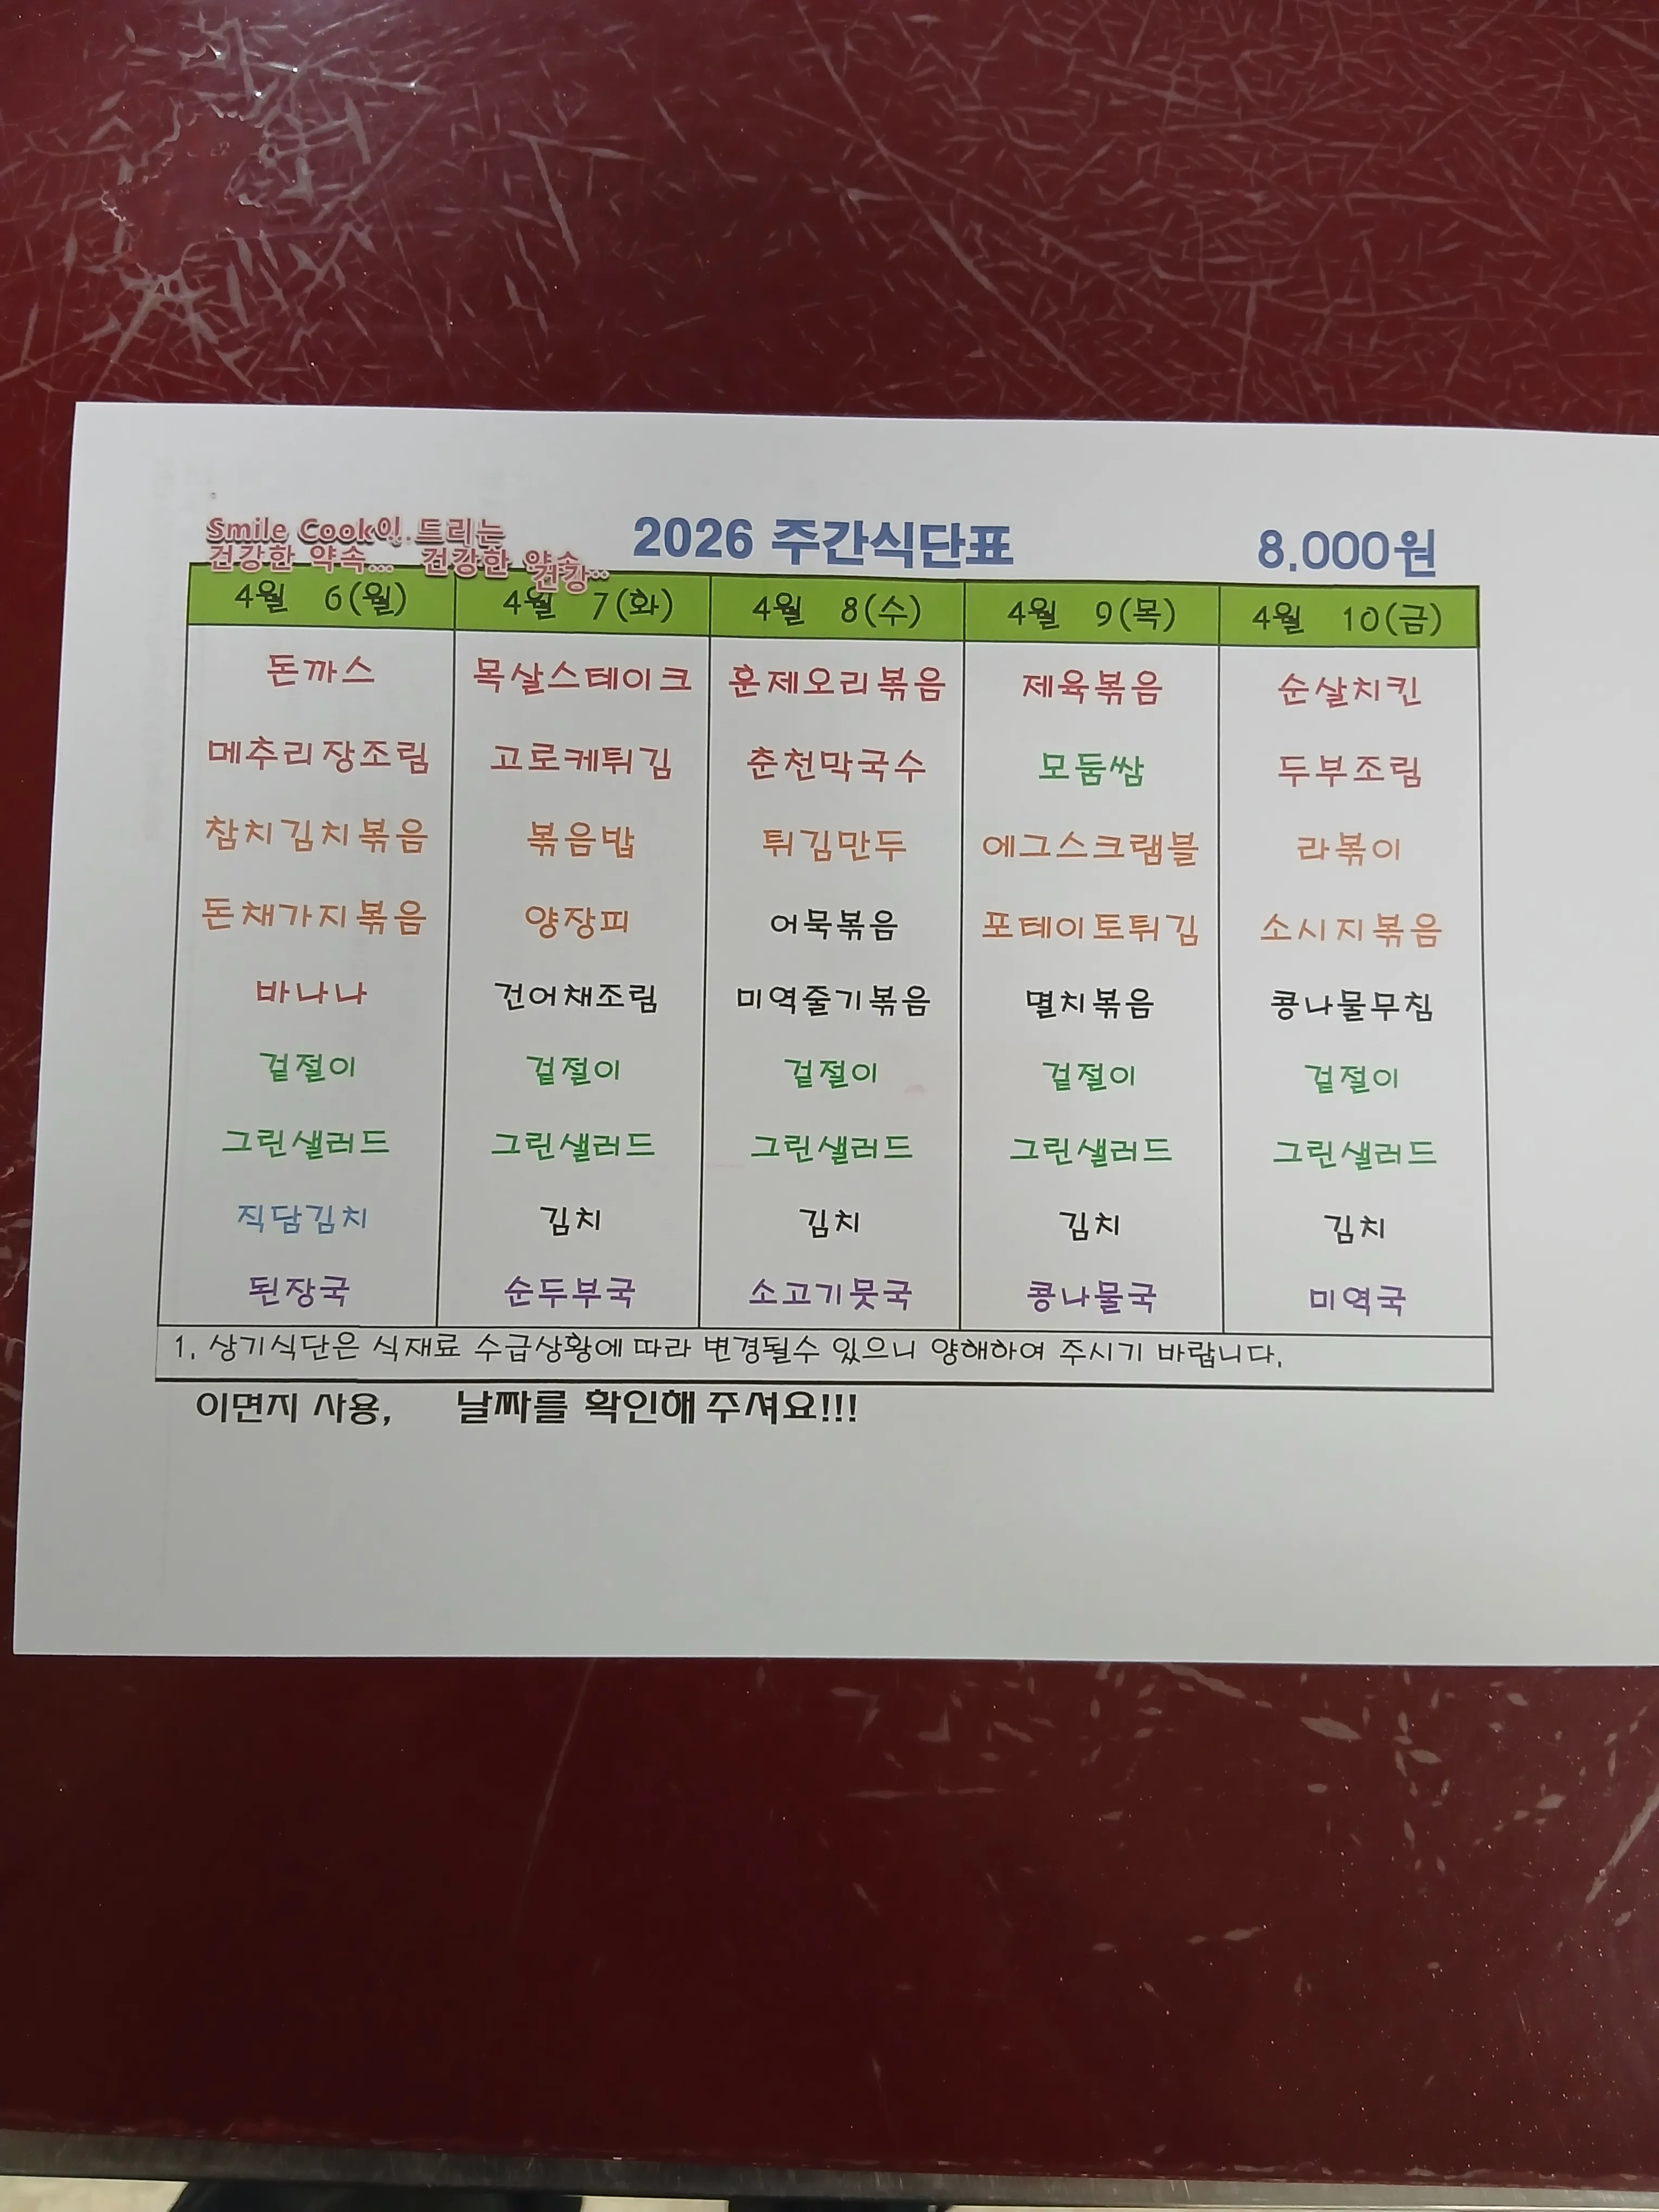 Smile Cook이 드리는
건강한 약속... 건강한 약속
건강..
2026 주간식단표 8.000원
4월 6(월) 4월 7(화) 4월 8(수) 4월 9(목) 4월 10(금)
돈까스 목살스테이크 훈제오리볶음 제육볶음 순살치킨
메추리장조림 고로케튀김 춘천막국수 모둠쌈 두부조림
참치김치볶음 볶음밥 튀김만두 에그스크램블 라볶이
돈채가지볶음 양장피 어묵볶음 포테이토튀김 소시지볶음
바나나 건어채조림 미역줄기볶음 멸치볶음 콩나물무침
겉절이 겉절이 겉절이 겉절이 겉절이
그린샐러드 그린샐러드 그린샐러드 그린샐러드 그린샐러드
직담김치 김치 김치 김치 김치
된장국 순두부국 소고기뭇국 콩나물국 미역국
1. 상기식단은 식재료 수급상황에 따라 변경될수 있으니 양해하여 주시기 바랍니다.
이면지 사용, 날짜를 확인해 주셔요!!!